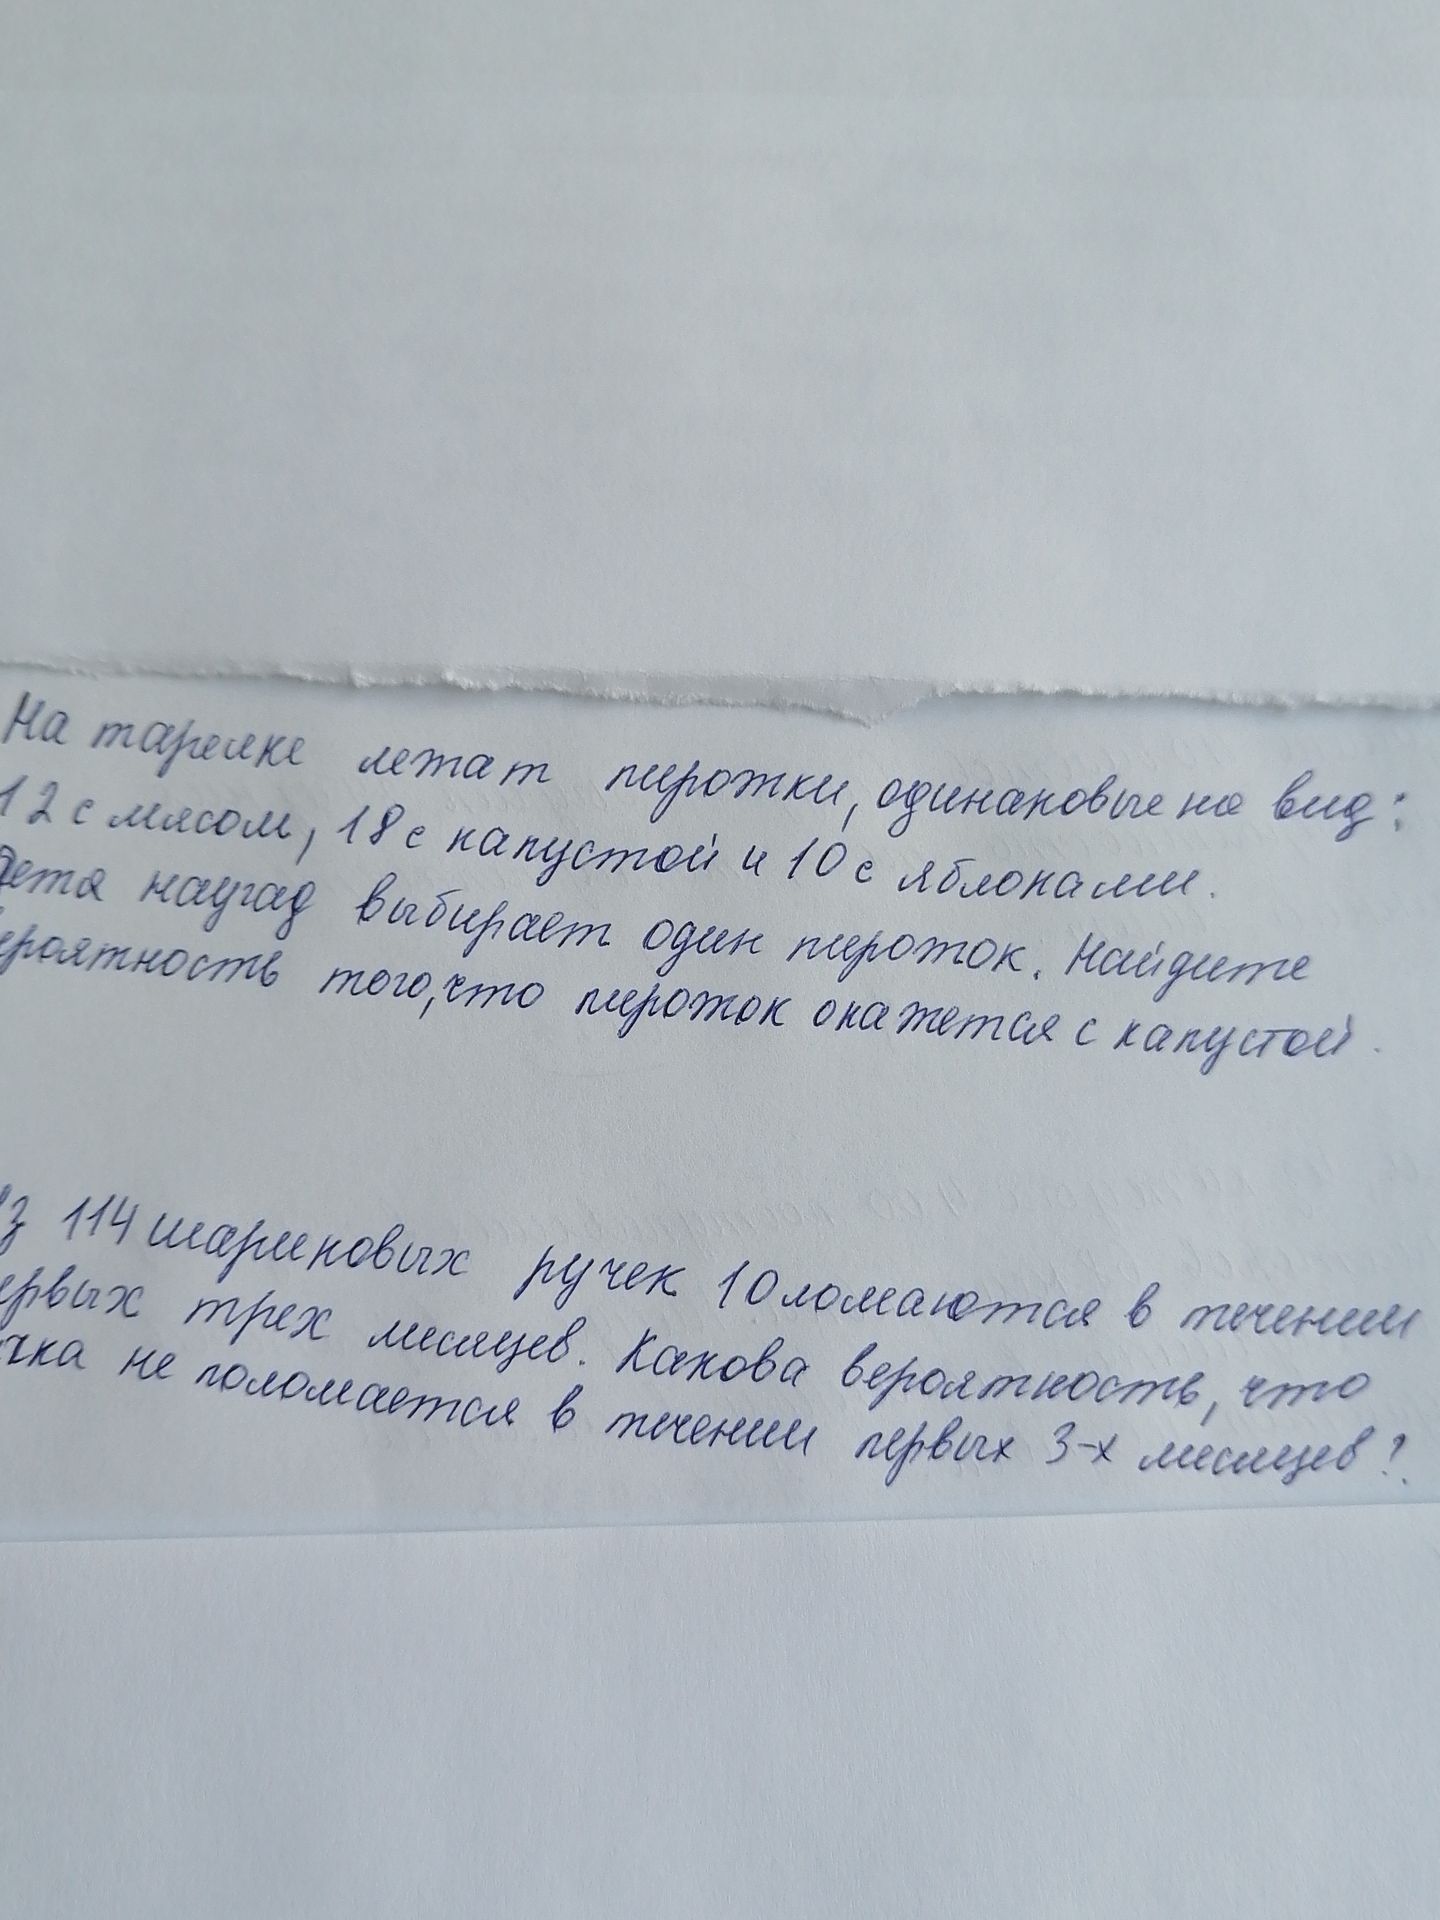 На тарелке лежат пирожки, одинаковые на вид:
12 с мясом, 18 с капустой и 10 с яблоками.
наугад выбирает один пирожок. Найдите
ероятность того, что пирожок окажется с капустой.
Из 114 шариковых ручек 10 ломаются в течении
ервых трех месяцев. Какова вероятность, что
чка не поломается в течении первых 3-х месяцев?